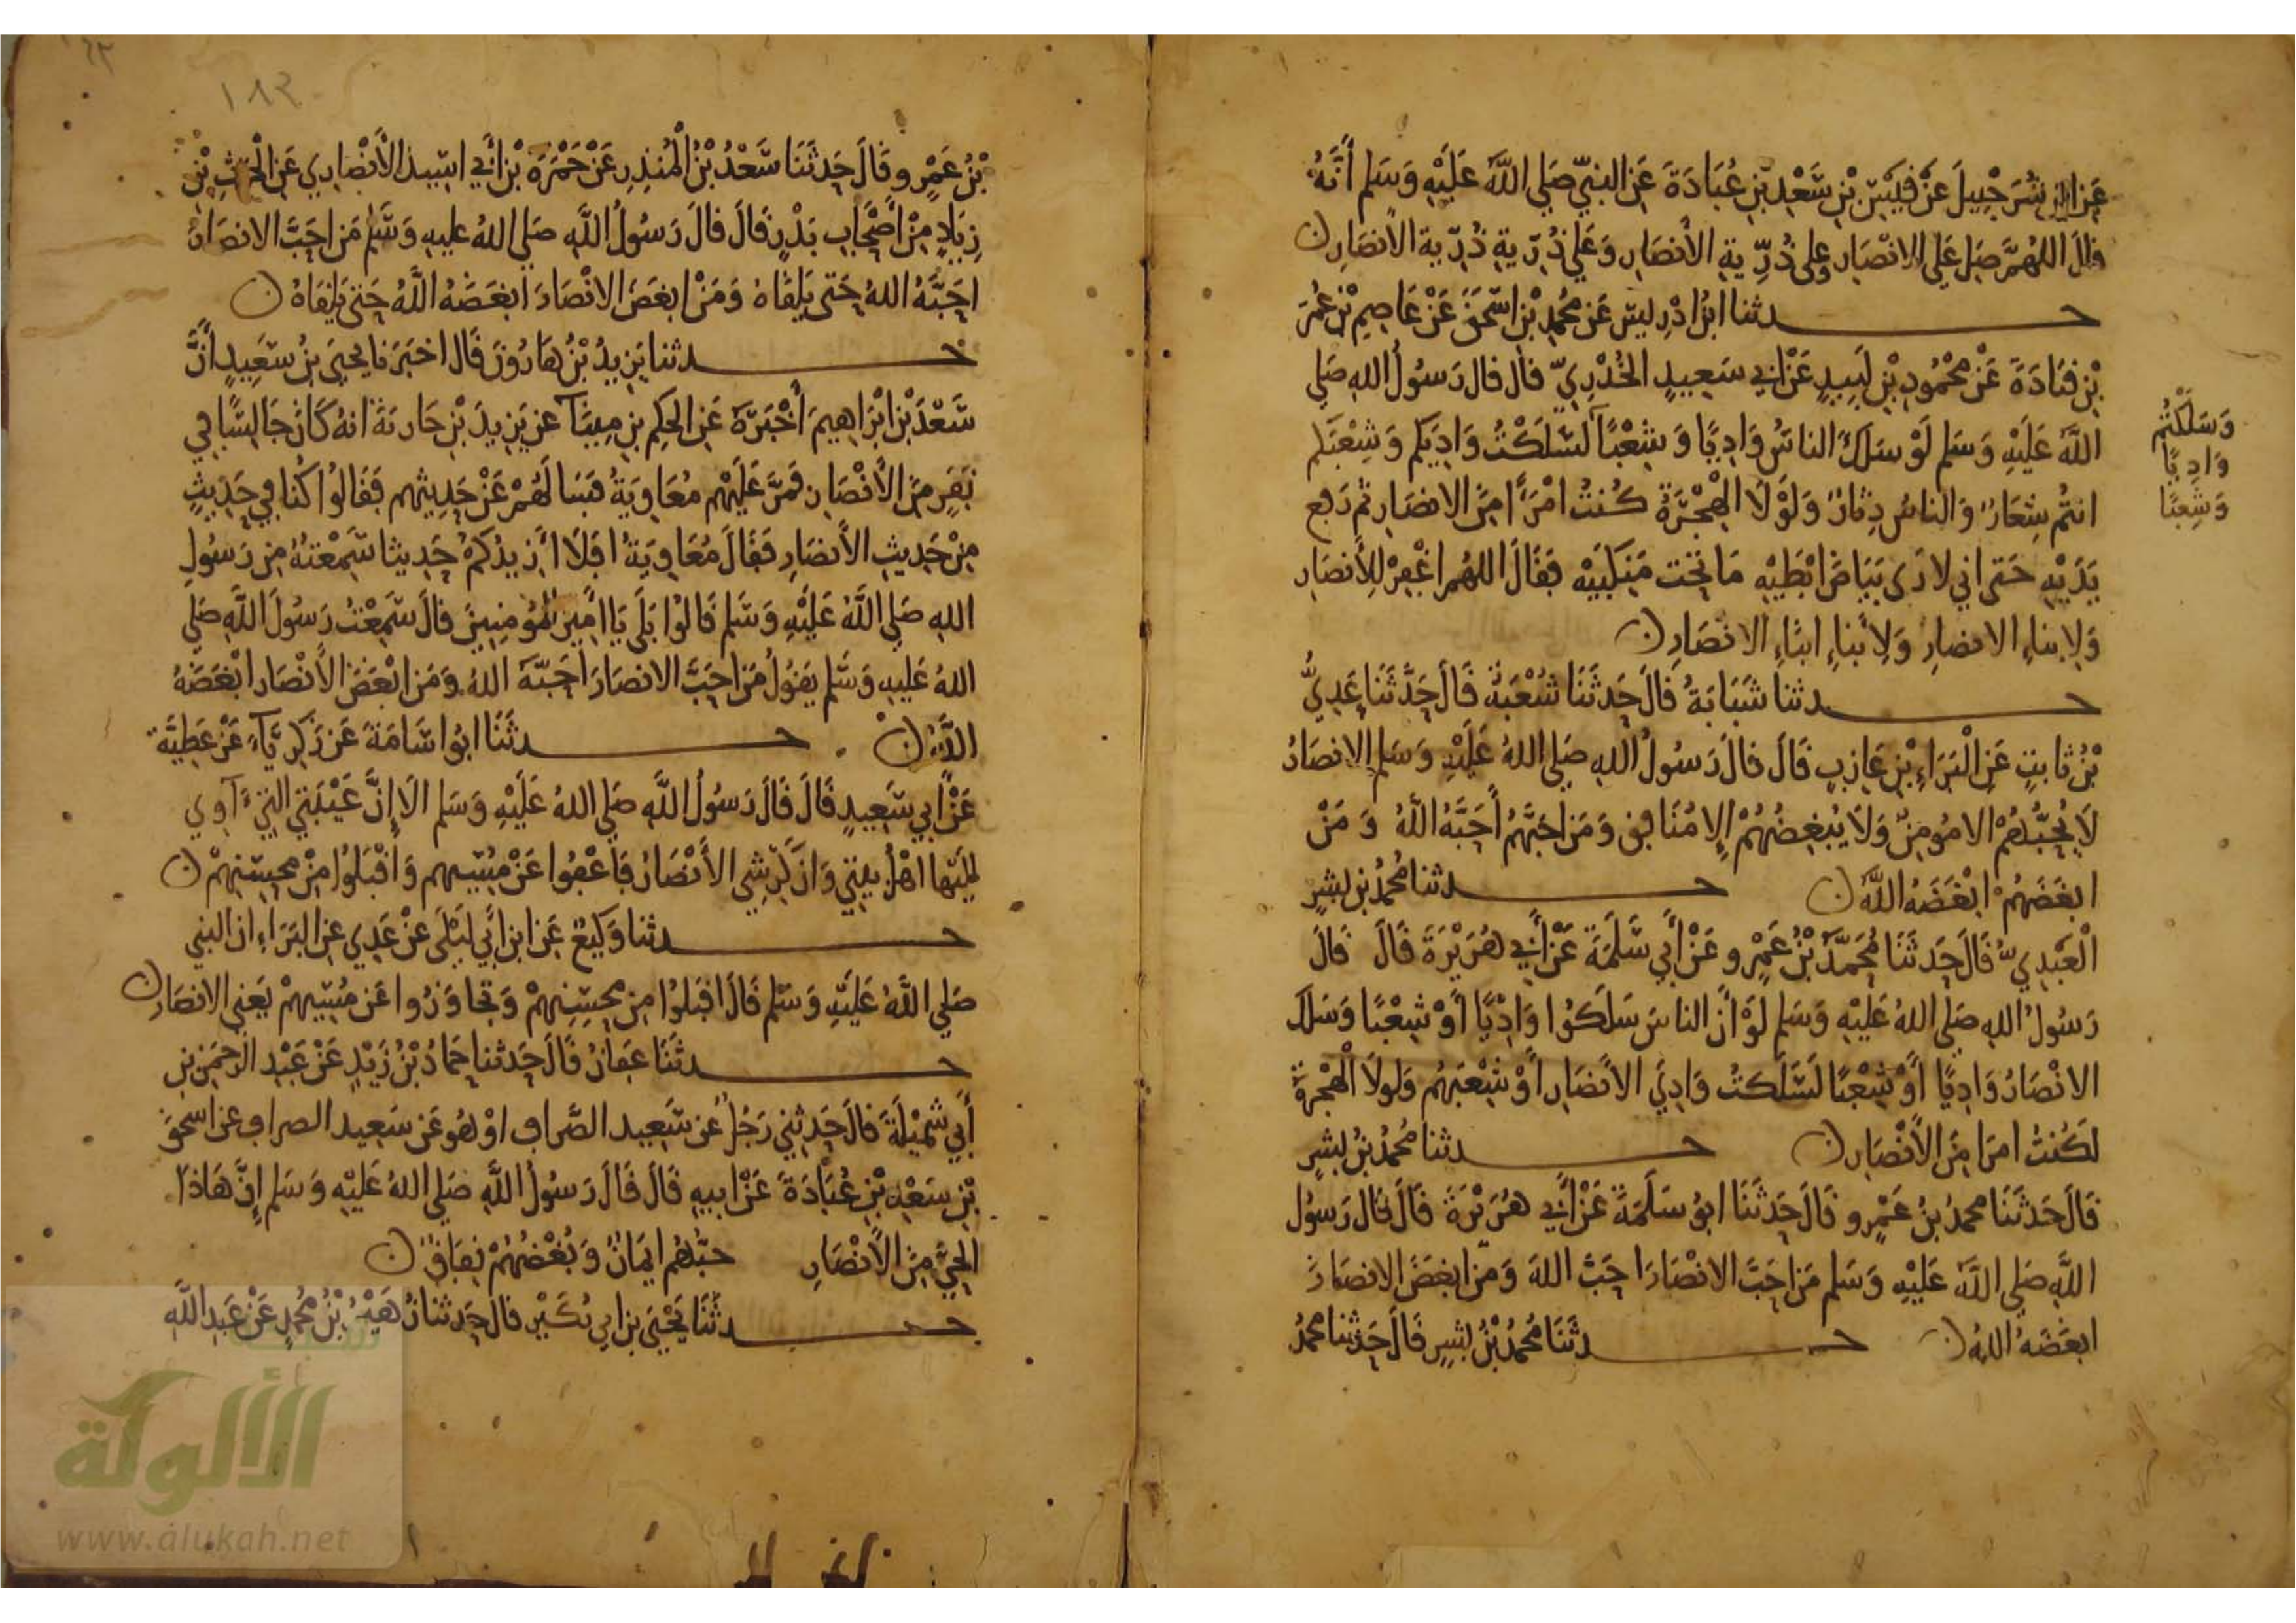 عَن ابن شُرَحْبِيلَ عَنْ قَيْسِ بْنِ سَعْدِ بْنِ عُبَادَةَ عَنِ النبيِّ صَلي اللَّه عَلَيْهِ وَسَلم أَنَّهُ
قالَ اللهُمَّ صَلِ عَلَى الانْصَارِ وعلى ذُرِّيةِ الأَنصَارِ وَعَلي ذُرِّيةِ ذُرِّيةِ الأنصَارِ ۞
حدثنا ابنُ ادْرِيسَ عَن محمدِ بْنِ اسْحَقَ عَنْ عَاصِمِ بْنِ عُمَرَ
بْنِ قتَادَةَ عَنْ مَحْمُودِ بْنِ لَبِيدٍ عَنْ ابي سَعِيدٍ الخُدْرِيِّ قال قال رَسُولُ اللهِ صَلي
اللَّه عَلَيْهِ وَسَلم لَوْ سَلَكَ الناسُ وَادِيًا وَشِعْبًا لَسَلَكْتُ وَادِيَكم وَشِعْبَكم
وَسَلَكْتُم
وَادِيًا
وَشِعبًا
انتُم شِعَارٌ وَالناسُ دِثَارٌ وَلَوْلَا الْهِجْرَةُ كُنتُ امْرَأً مِنَ الانصَارِ ثم رَفع
يَدَيْهِ حَتى اني لارَى بَيَاضَ ابْطَيْهِ مَا تحْت مَنكِبَيْه فقَالَ اللهُم اغْفِرْ لِلأَنصَارِ
وَلِابناءِ الانصارِ وَلِأبناءِ ابنَاءِ الانْصَارِ ۞
حدثنا شَبَابَةُ قالَ حَدثَنَا شُعْبَةُ قَالَ حَدَّثَنَا عَدِيُّ
بْنُ ثابتٍ عَنِ الْبَرَاءِ بْنِ عَازِبٍ قَالَ قالَ رَسُولُ اللهِ صَلي اللهُ عَلَيْهِ وَسَلم الانصَارُ
لَا يُحِبُّهُمْ الا مُومِنٌ وَلَا يُبْغِضُهُمْ إلا مُنَافِق وَمَن احَبَّهُم أَحَبَّهُ اللَّهُ وَمَنْ
ابغَضَهُمْ ابْغَضَهُ اللَّه ۞ حدثنا مُحمدُ بن بشرٍ
الْعَبْدِيُّ قَالَ حَدثَنَا مُحَمَّدُ بْنُ عَمْرٍو عَنْ أَبي سَلَمَةَ عَنْ أَبي هُرَيْرَةَ قَالَ قَالَ
رَسُولُ اللهِ صَلي اللهُ عَلَيْهِ وَسَلم لَوْ أَنَّ الناسَ سَلَكُوا وَادِيًا أَوْ شِعْبًا وَسَلَكَ
الانْصَارُ وَادِيًا أَوْ شِعْبًا لَسَلَكتُ وَادِيَ الأَنصَارِ أَوْ شِعْبَهُم وَلولَا الْهِجْرَةُ
لَكُنتُ امرَا مِنَ الأَنْصَارِ ۞ حدثنا مُحمدُ بْنُ بشرٍ
قَالَ حَدثَنَا محمدُ بنُ عَمْرٍو قَالَ حَدثَنَا ابوُ سَلَمَةَ عَنْ أَبي هُرَيْرَةَ قَالَ قال رَسُولُ
اللَّهِ صَلي اللَّه عَلَيْهِ وَسَلم مَن احَبَّ الانْصَارَ احَبَّ اللهَ وَمَن ابغَضَ الانصَارَ
ابغَضَهُ اللهُ ۞ حدثَنَا مُحمدُ بْنُ بِشرٍ قَالَ حَدثنا محمدُ
١٨٣
بْنُ عَمْرٍو قَالَ حَدثَنَا سَعْدُ بْنُ الْمُنذِرِ عَنْ حَمْزَةَ بْنِ أَبي اسَيدِ الأَنْصَارِي عَنِ الْحَرثِ بْنِ
زِيَادٍ مِنْ أَصْحَابِ بَدْرٍ قَالَ قالَ رَسُولُ اللَّهِ صَلي اللهُ عليهِ وَسَلم مَن احَبَّ الانصَارَ
احَبَّهُ اللهُ حَتى يَلقَاهُ وَمَنْ ابغَضَ الانْصَارَ ابغَضَهُ اللَّهُ حَتى يَلقَاهُ ۞
حدثنا يَزِيدُ بْنُ هَارُونَ قَال اخبَرَنا يحيىَ بنُ سَعِيدٍ أَنَّ
سَعْدَ بْنَ ابْرَاهِيمَ أَخْبَرَهُ عَنِ الحكِمِ بنِ مِينَآ عن يَزِيدَ بْنِ جَارية انهُ كَانَ جَالِسًا في
نَفَرٍ مِنَ الأَنْصَارِ فَمَرَّ عَلَيْهِم مُعَاوِيَةُ فَسَالَهُمْ عَنْ حَدِيثِهِم فَقَالُوا كُنا في حَدِيثٍ
مِنْ حَدِيثِ الأَنصَارِ فَقَالَ مُعَاوِيَةُ افَلَا أَزِيدُكمْ حَدِيثا سَمِعْتهُ مِن رَسُولِ
اللهِ صَلي اللَّهُ عَلَيْهِ وَسَلم قَالُوا بَلَى يَا امِيرَ المُؤمِنِينَ قالَ سَمِعْتُ رَسُولَ اللَّهِ صَلي
اللهُ عَلَيهِ وَسَلم يَقولُ مَن احَبَّ الانصَارَ احَبَّهُ اللهُ وَمَن ابْغَضَ الأَنْصَارَ ابْغَضَهُ
اللَّهُ ۞ حدثَنَا ابوُ اسَامَةَ عَن زَكرِيَّآءَ عَنْ عَطِيَّةَ
عَنْ أَبي سَعِيدٍ قَالَ قَالَ رَسُولُ اللَّهِ صَلي اللهُ عَلَيْهِ وَسَلم الَا إِنَّ عَيْبَتيَ التي ءَاوِي
إليْها اهْلُ بيتي وَانَّ كَرِشي الأَنْصَارُ فَاعْفُوا عَنْ مُسِيئِهم وَاقْبَلُوا مِنْ محسِنِهمْ ۞
حدثنا وَكِيعٌ عَن ابن أَبي لَيْلَى عَنْ عَدِي عن البَرَاءِ ان النبي
صَلي اللَّهُ عَلَيْهِ وَسَلم قَالَ اقبَلوُا مِن محسِنِهِمْ وَتجَاوَزُوا عَن مُسِيئِهِمْ يَعْني الانصَارِ ۞
حدثَنَا عَفانُ قَالَ حَدثنا حَمادُ بْنُ زَيْدٍ عَنْ عَبْدِ الرحمَنِ بنِ
أَبي شمَيْلَةَ قالَ حَدثني رَجُلٌ عَن سَعِيد الصَّراف اوْ هُو عَن سَعِيد الصراف عن اسحَقَ
بْنِ سَعْدِ بْنِ عُبَادَةَ عَنْ ابيهِ قَالَ قَالَ رَسُولُ اللَّهِ صَلي اللهُ عَلَيْهِ وَسَلم إِنَّ هَاذَا
الحيَّ مِنَ الأَنْصَارِ حبُّهُم ايمَانٌ وَبُغْضُهُمْ نِفَاقٌ ۞
حدثَنَا يَحْيَى بن ابي بُكَيْرٍ قالَ حَدثنا زُهَيْرُ بْنُ مُحمدٍ عَنْ عَبدِ اللَّهِ
شبكة
الألوكة
www.alukah.net